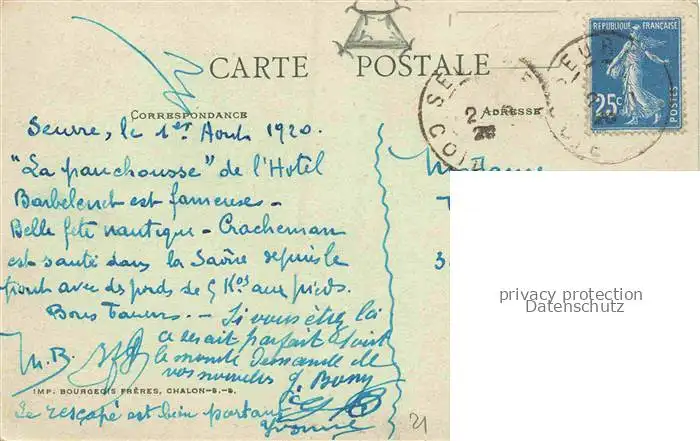 CARTE POSTALE
CORRESPONDANCE
ADRESSE
RÉPUBLIQUE FRANÇAISE
25c
POSTES
Seurre, le 1er Août 1920.
"La pauchousse" de l'Hotel
Barbelenet est fameuse -
Belle fête nautique - Cracheman
est sauté dans la Saône depuis le
pont avec des poids de 5 Kos aux pieds.
Bons - Si vous étiez ici
ce serait parfait
le monde demande de
M.B. vos nouvelles
IMP. BOURGEOIS FRÈRES, CHALON-S.-S.
Le rescapé est bien portant
Yvonne
Madame
21
privacy protection
Datenschutz